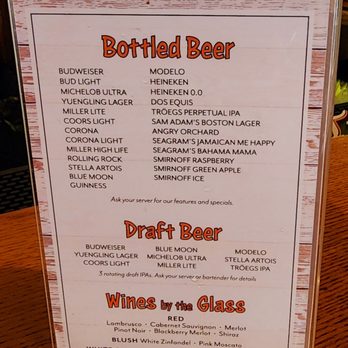 Bottled Beer
BUDWEISER MODELO
BUD LIGHT HEINEKEN
MICHELOB ULTRA HEINEKEN 0.0
YUENGLING LAGER DOS EQUIS
MILLER LITE TRÖEGS PERPETUAL IPA
COORS LIGHT SAM ADAM'S BOSTON LAGER
CORONA ANGRY ORCHARD
CORONA LIGHT SEAGRAM'S JAMAICAN ME HAPPY
MILLER HIGH LIFE SEAGRAM'S BAHAMA MAMA
ROLLING ROCK SMIRNOFF RASPBERRY
STELLA ARTOIS SMIRNOFF GREEN APPLE
BLUE MOON SMIRNOFF ICE
GUINNESS
Ask your server for our features and specials.
Draft Beer
BUDWEISER BLUE MOON MODELO
YUENGLING LAGER MICHELOB ULTRA STELLA ARTOIS
COORS LIGHT MILLER LITE TRÖEGS IPA
3 rotating draft IPAs. Ask your server or bartender for details
Wines by the Glass
RED
Lambrusco · Cabernet Sauvignon · Merlot
Pinot Noir · Blackberry Merlot · Shiraz
BLUSH White Zinfandel · Pink Moscato